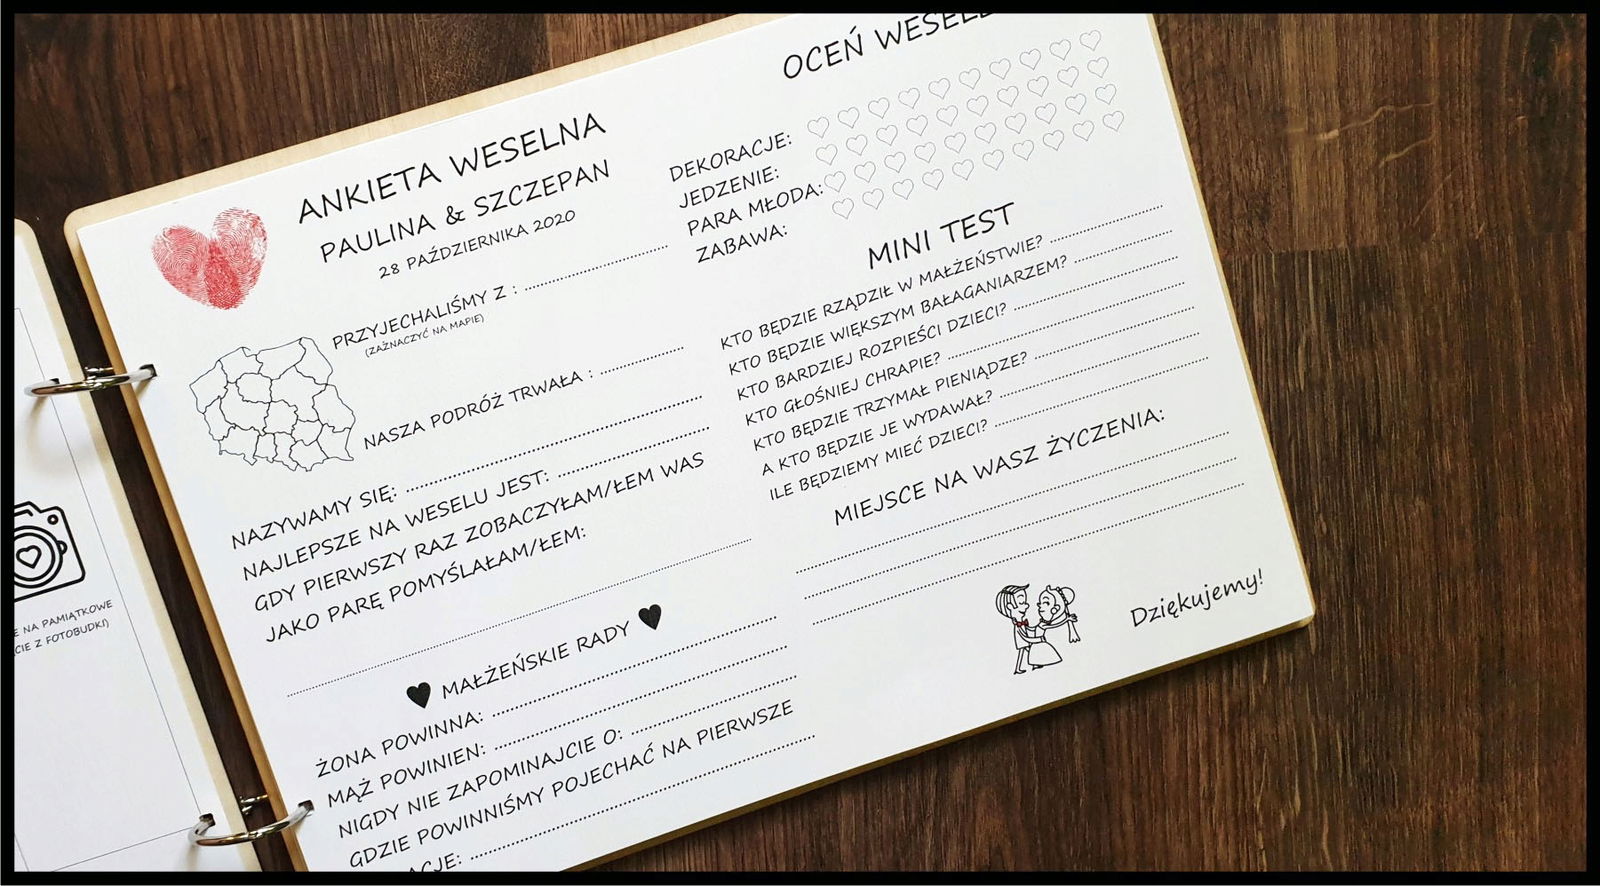 ANKIETA WESELNA
PAULINA & SZCZEPAN
28 PAŹDZIERNIKA 2020
PRZYJECHALIŚMY Z :
(ZAŻNACZYĆ NA MAPIE)
NASZA PODRÓŻ TRWAŁA :
NAZYWAMY SIĘ:
NAJLEPSZE NA WESELU JEST:
GDY PIERWSZY RAZ ZOBACZYŁAM/ŁEM WAS
JAKO PARĘ POMYŚLAŁAM/ŁEM:
MAŁŻEŃSKIE RADY
ŻONA POWINNA:
MĄŻ POWINIEN:
NIGDY NIE ZAPOMINAJCIE O:
GDZIE POWINNIŚMY POJECHAĆ NA PIERWSZE
OCEŃ
DEKORACJE:
JEDZENIE:
PARA MŁODA:
ZABAWA:
MINI TEST
KTO BĘDZIE RZĄDZIŁ W MAŁŻEŃSTWIE?
KTO BĘDZIE WIĘKSZYM BAŁAGANIARZEM?
KTO BARDZIEJ ROZPIEŚCI DZIECI?
KTO GŁOŚNIEJ CHRAPIE?
KTO BĘDZIE TRZYMAŁ PIENIĄDZE?
A KTO BĘDZIE JE WYDAWAŁ?
ILE BĘDZIEMY MIEĆ DZIECI?
MIEJSCE NA WASZ ŻYCZENIA:
Dziękujemy!
NA PAMIĄTKOWE
Z FOTOBUDKI)